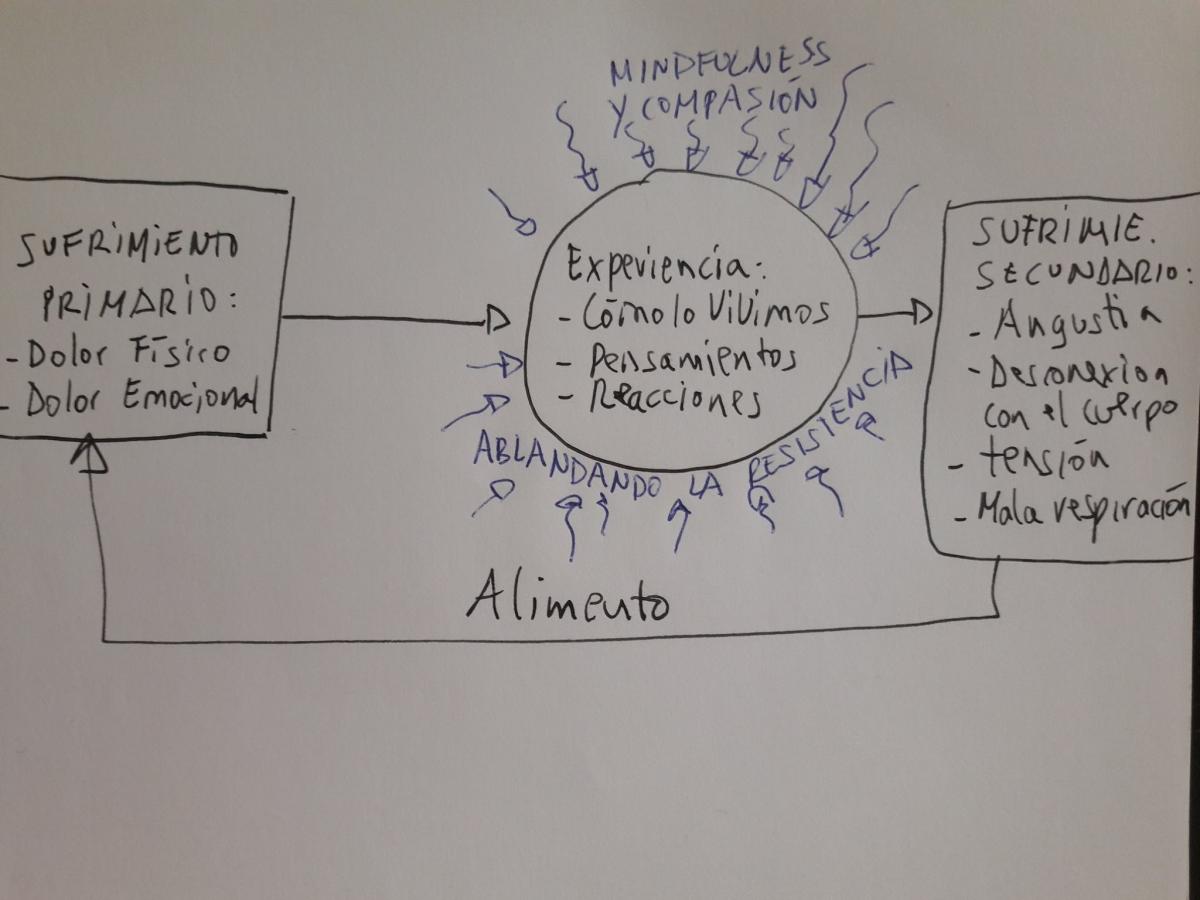 MINDFULNESS
Y COMPASIÓN
SUFRIMIENTO
PRIMARIO:
- Dolor Físico
- Dolor Emocional
Experiencia:
- Cómo lo Vivimos
- Pensamientos
- Reacciones
ABLANDANDO LA RESISTENCIA
SUFRIMIE.
SECUNDARIO:
- Angustia
- Desconexion
con el cuerpo
- tensión
- Mala respiración
Alimento